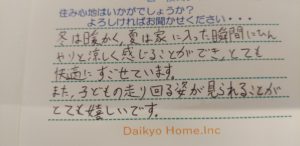 住み心地はいかがでしょうか？
よろしければお聞かせください・・・
冬は暖かく、夏は家に入った瞬間にひん
やりと涼しく感じることができ、とても
快適にすごせています。
また、子どもの走り回る姿が見られることが
とても嬉しいです。
Daikyo Home.Inc